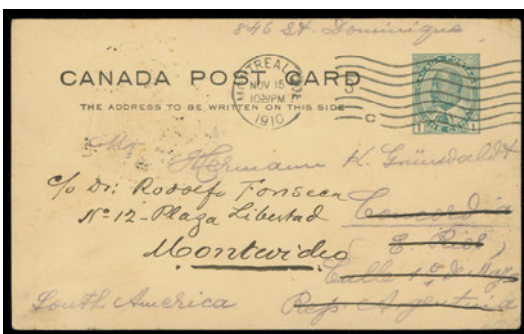 846 St. Dominique
CANADA POST CARD
THE ADDRESS TO BE WRITTEN ON THIS SIDE
MONTREAL
NOV 15
1910
C
Mr.
Hermann K.
c/o Dr: Rodolfo Fonseca
Nº 12 - Plaza Libertad
Concordia
E. Rios,
Montevideo
Calle 1º de
South America
Rep. Argentina